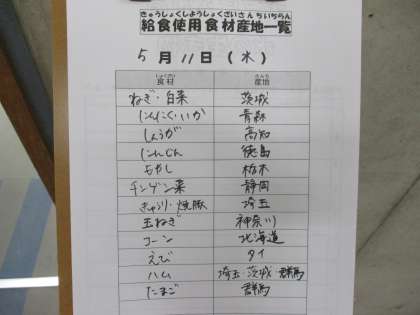 きゅうしょくしようしょくざいさんちいちらん
給食使用食材産地一覧
5月11日(水)
しょくざい さんち
食材 産地
ねぎ・白菜 茨城
にんにく・いか 青森
しょうが 高知
にんじん 徳島
もやし 栃木
チンゲン菜 静岡
きゅうり・焼豚 埼玉
玉ねぎ 神奈川
コーン 北海道
えび タイ
ハム 埼玉・茨城 群馬
たまご 群馬